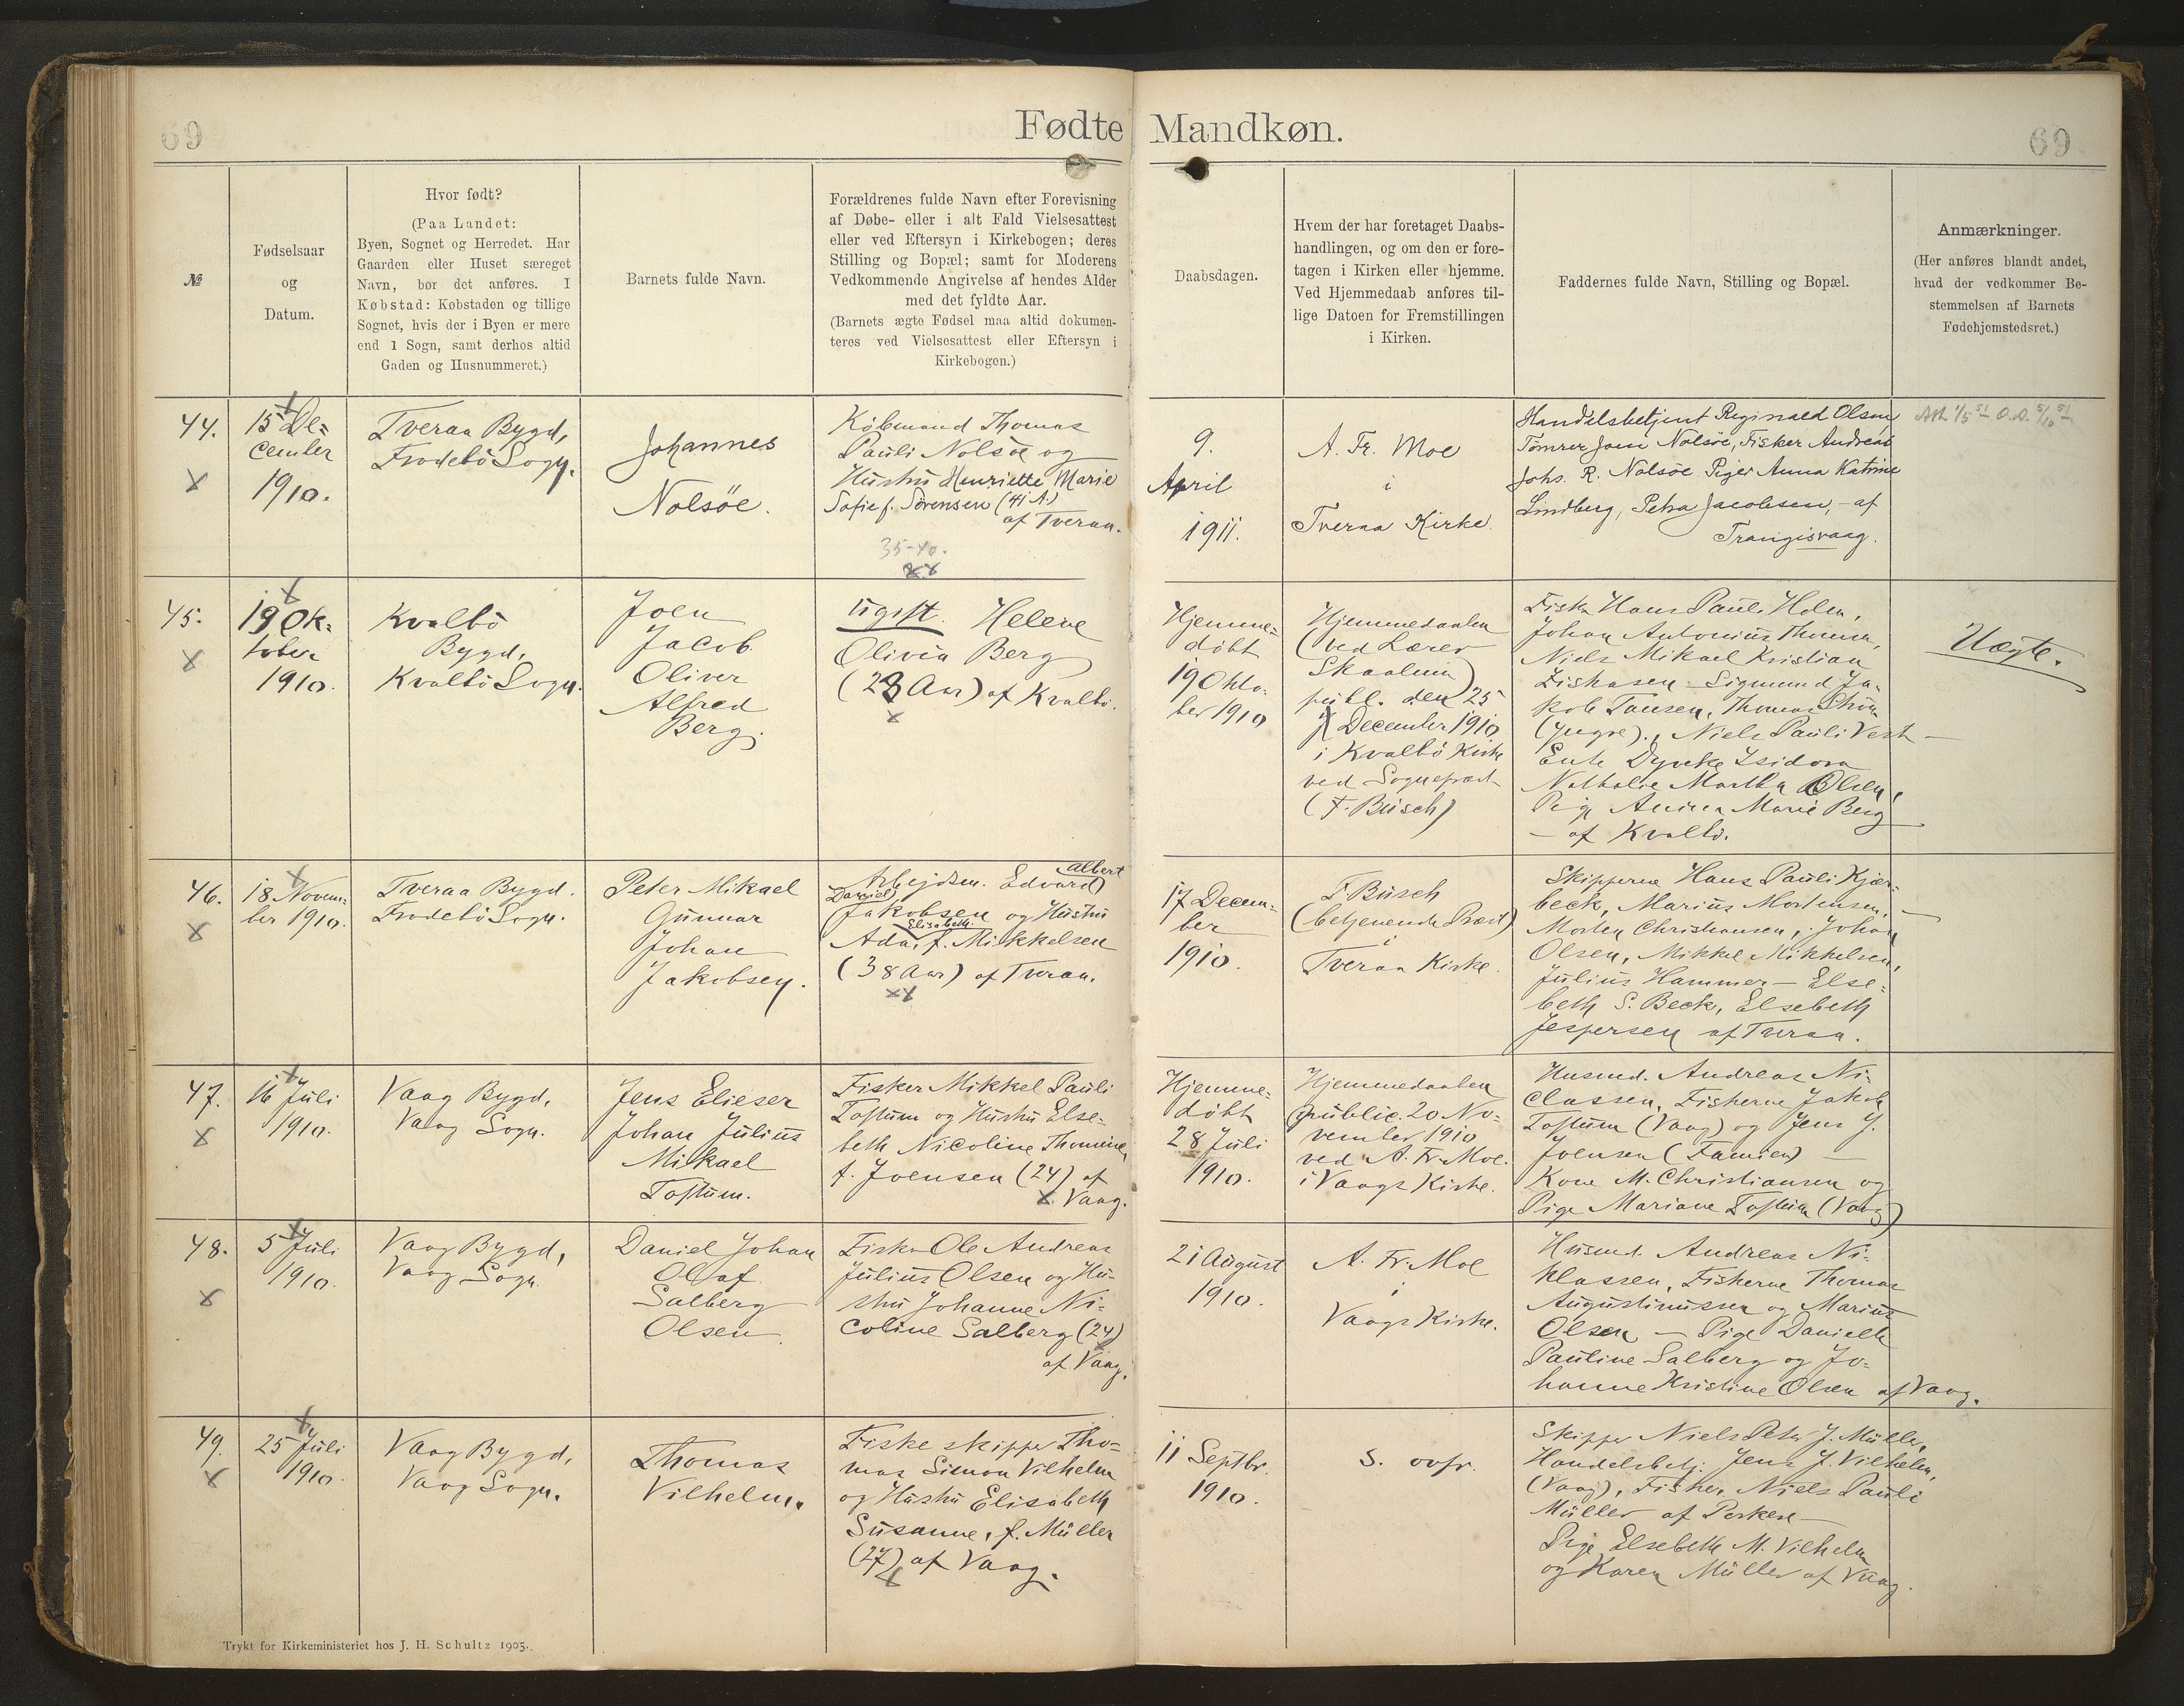 69
Fødte Mandkøn.
69
№
Fødselsaar
og
Datum.
Hvor født?
(Paa Landet:
Byen, Sognet og Herredet. Har
Gaarden eller Huset særeget
Navn, bør det anføres. I
Købstad: Købstaden og tillige
Sognet, hvis der i Byen er mere
end 1 Sogn, samt derhos altid
Gaden og Husnummeret.)
Barnets fulde Navn.
Forældrenes fulde Navn efter Forevisning
af Døbe- eller i alt Fald Vielsesattest
eller ved Eftersyn i Kirkebogen; deres
Stilling og Bopæl; samt for Moderens
Vedkommende Angivelse af hendes Alder
med det fyldte Aar.
(Barnets ægte Fødsel maa altid dokumen-
teres ved Vielsesattest eller Eftersyn i
Kirkebogen.)
Daabsdagen.
Hvem der har foretaget Daabs-
handlingen, og om den er fore-
tagen i Kirken eller hjemme.
Ved Hjemmedaab anføres til-
lige Datoen for Fremstillingen
i Kirken.
Faddernes fulde Navn, Stilling og Bopæl.
Anmærkninger.
(Her anføres blandt andet,
hvad der vedkommer Be-
stemmelsen af Barnets
Fødehjemstedsret.)
44.
15 De=
cember
1910.
Tveraa Bygd,
Frodebö Sogn.
Johannes
Nolsöe.
Købmand Thomas
Pauli Nolsöe og
Hustru Henriette Marie
Sofie f. Sörensen (41 A.)
af Tveraa.
35-40.
9.
April
1911.
A. Fr. Moe
i
Tveraa Kirke.
Handelsbetjent Reginald Olsen,
Tömrer Joen Nolsöe, Fisker Andreas
Johs. R. Nolsöe Piger Anna Katrine
Lindberg, Petra Jacobsen, - af
Trangisvaag.
45.
19 Ok-
tober
1910.
Kvalbö
Bygd,
Kvalbö Sogn.
Joen
Jacob
Oliver
Alfred
Berg.
ugift. Helene
Olivia Berg
(23 Aar) af Kvalbö.
Hjemme=
döbt
19 Okto-
ber 1910
Hjemmedaaben
(ved Lærer
Skaalum)
publ. den 25
December 1910
i Kvalbö Kirke
ved Sognepræst
(F. Busch)
Fisker Hans Pauli Holm,
Johan Antonius Thomsen,
Niels Mikael Kristian
Sigmund Ja-
kob Tausen, Thomas Ström
(yngre)., Niels Pauli Vest -
Enke Dyveke Isidora
Nathalie Martha Olsen,
Pige Anina Marie Berg
- af Kvalbö.
Uægte.
46.
18 Novem=
ber 1910.
Tveraa Bygd.
Frodebö Sogn.
Peter Mikael
Gunnar
Johan
Jakobsen.
Arbejdsm. Edvard Albert
Daniel
Jakobsen og Hustru
Elisabeth
Ada, f. Mikkelsen
(38 Aar) af Tveraa.
17 Decem=
ber
1910.
F. Busch
(betjenende Præst)
i
Tveraa Kirke.
Skipperne Hans Pauli Kjær-
beck, Marius Mortensen, -
Morten Christiansen, Johan
Olsen, Mikkel Mikkelsen,
Julius Hammer - Else=
beth S. Beck, Elsebeth
Jespersen af Tveraa.
47.
16 Juli
1910.
Vaag Bygd,
Vaag Sogn.
Jens Elieser
Johan Julius
Mikael
Toftum.
Fisker Mikkel Pauli
Toftum og Hustru Else-
beth Nicoline Thomine,
f. Joensen (24) af
Vaag.
Hjemme=
döbt
28 Juli
1910.
Hjemmedaaben
public. 20 No-
vember 1910
ved A. Fr. Moe.
i Vaags Kirke.
Husmd. Andreas Ni-
classen, Fiskerne Jakob
Toftum (Vaag) og Jens J.
Joensen (Famien) -
Kone M. Christiansen og
Pige Mariane Toftum (Vaag)
48.
5 Juli
1910.
Vaag Bygd,
Vaag Sogn.
Daniel Johan
Olaf
Salberg
Olsen
Fisker Ole Andreas
Julius Olsen og Hu-
stru Johanne Ni-
coline Salberg (24)
af Vaag.
21 August
1910.
A. Fr. Moe
i
Vaags Kirke.
Husmd. Andreas Ni-
klassen, Fiskerne Thomas
Augustinussen og Marius
Olsen - Pige Danielle
Pauline Salberg og Jo-
hanne Kristine Olsen af Vaag.
49.
25 Juli
1910.
Vaag Bygd,
Vaag Sogn.
Thomas
Vilhelm.
Fiskeskipper Tho=
mas Simon Vilhelm
og Hustru Elisabeth
Susanne, f. Müller
(27) af Vaag.
11 Septbr.
1910.
S. ovfr.
Skipper Niels Peter J. Müller,
Handelsbetj. Jens J. Vilhelm,
(Vaag), Fisker Niels Pauli
Müller af Porkere -
Pige Elsebeth M. Vilhelm
og Karen Müller af Vaag.
Trykt for Kirkeministeriet hos J. H. Schultz 1905.